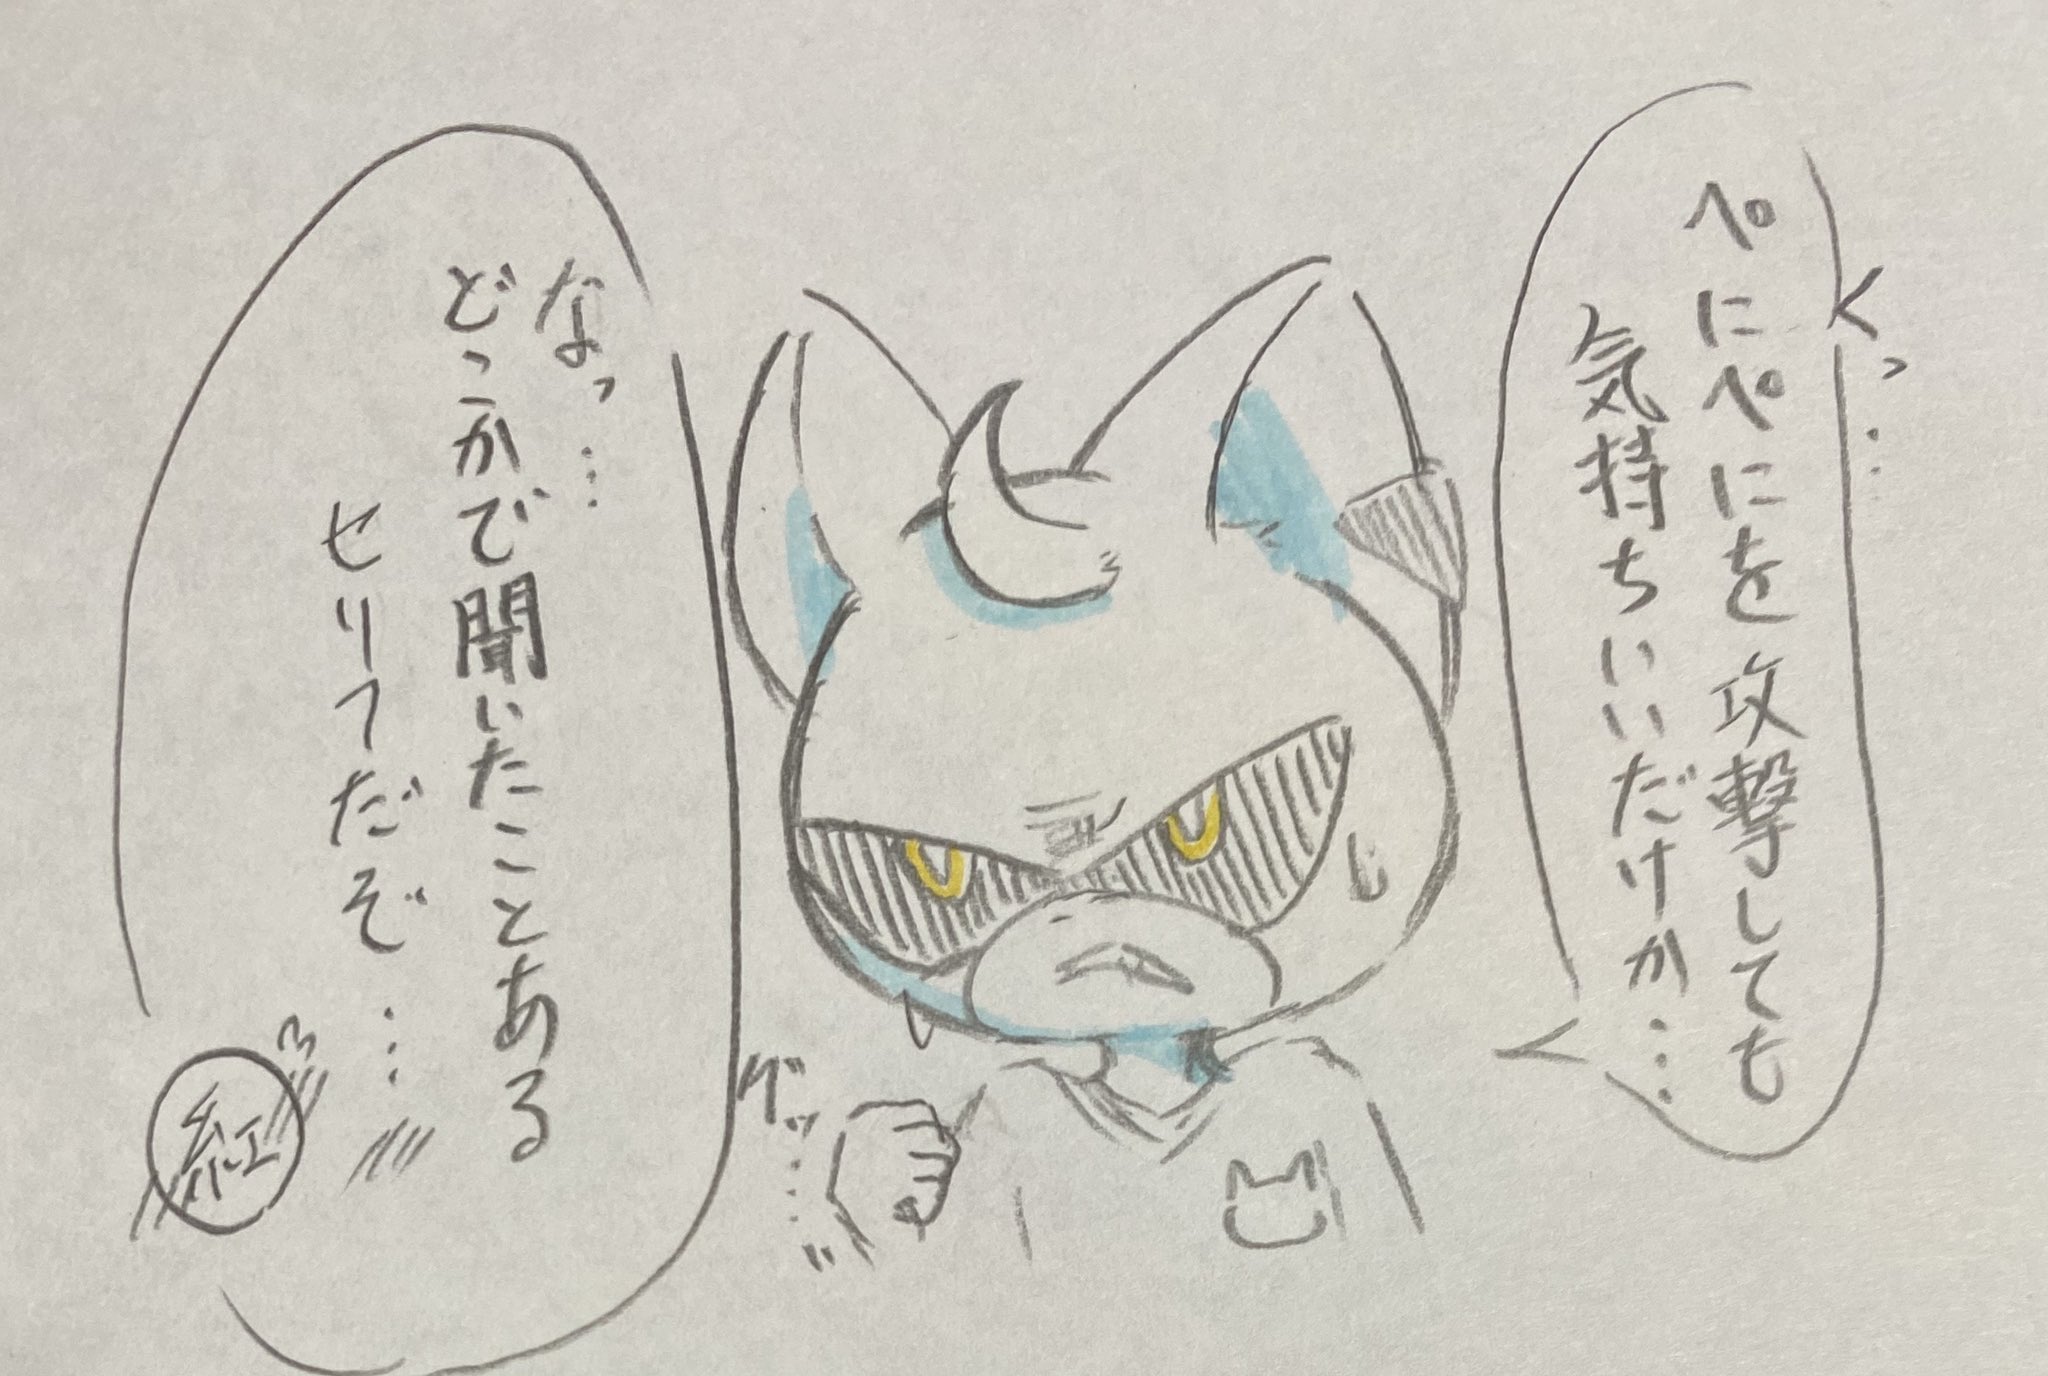 くっ…
ぺにぺにを攻撃しても
気持ちいいだけか…
グッ…
なっ…
どこかで聞いたことある
セリフだぞ…
紅